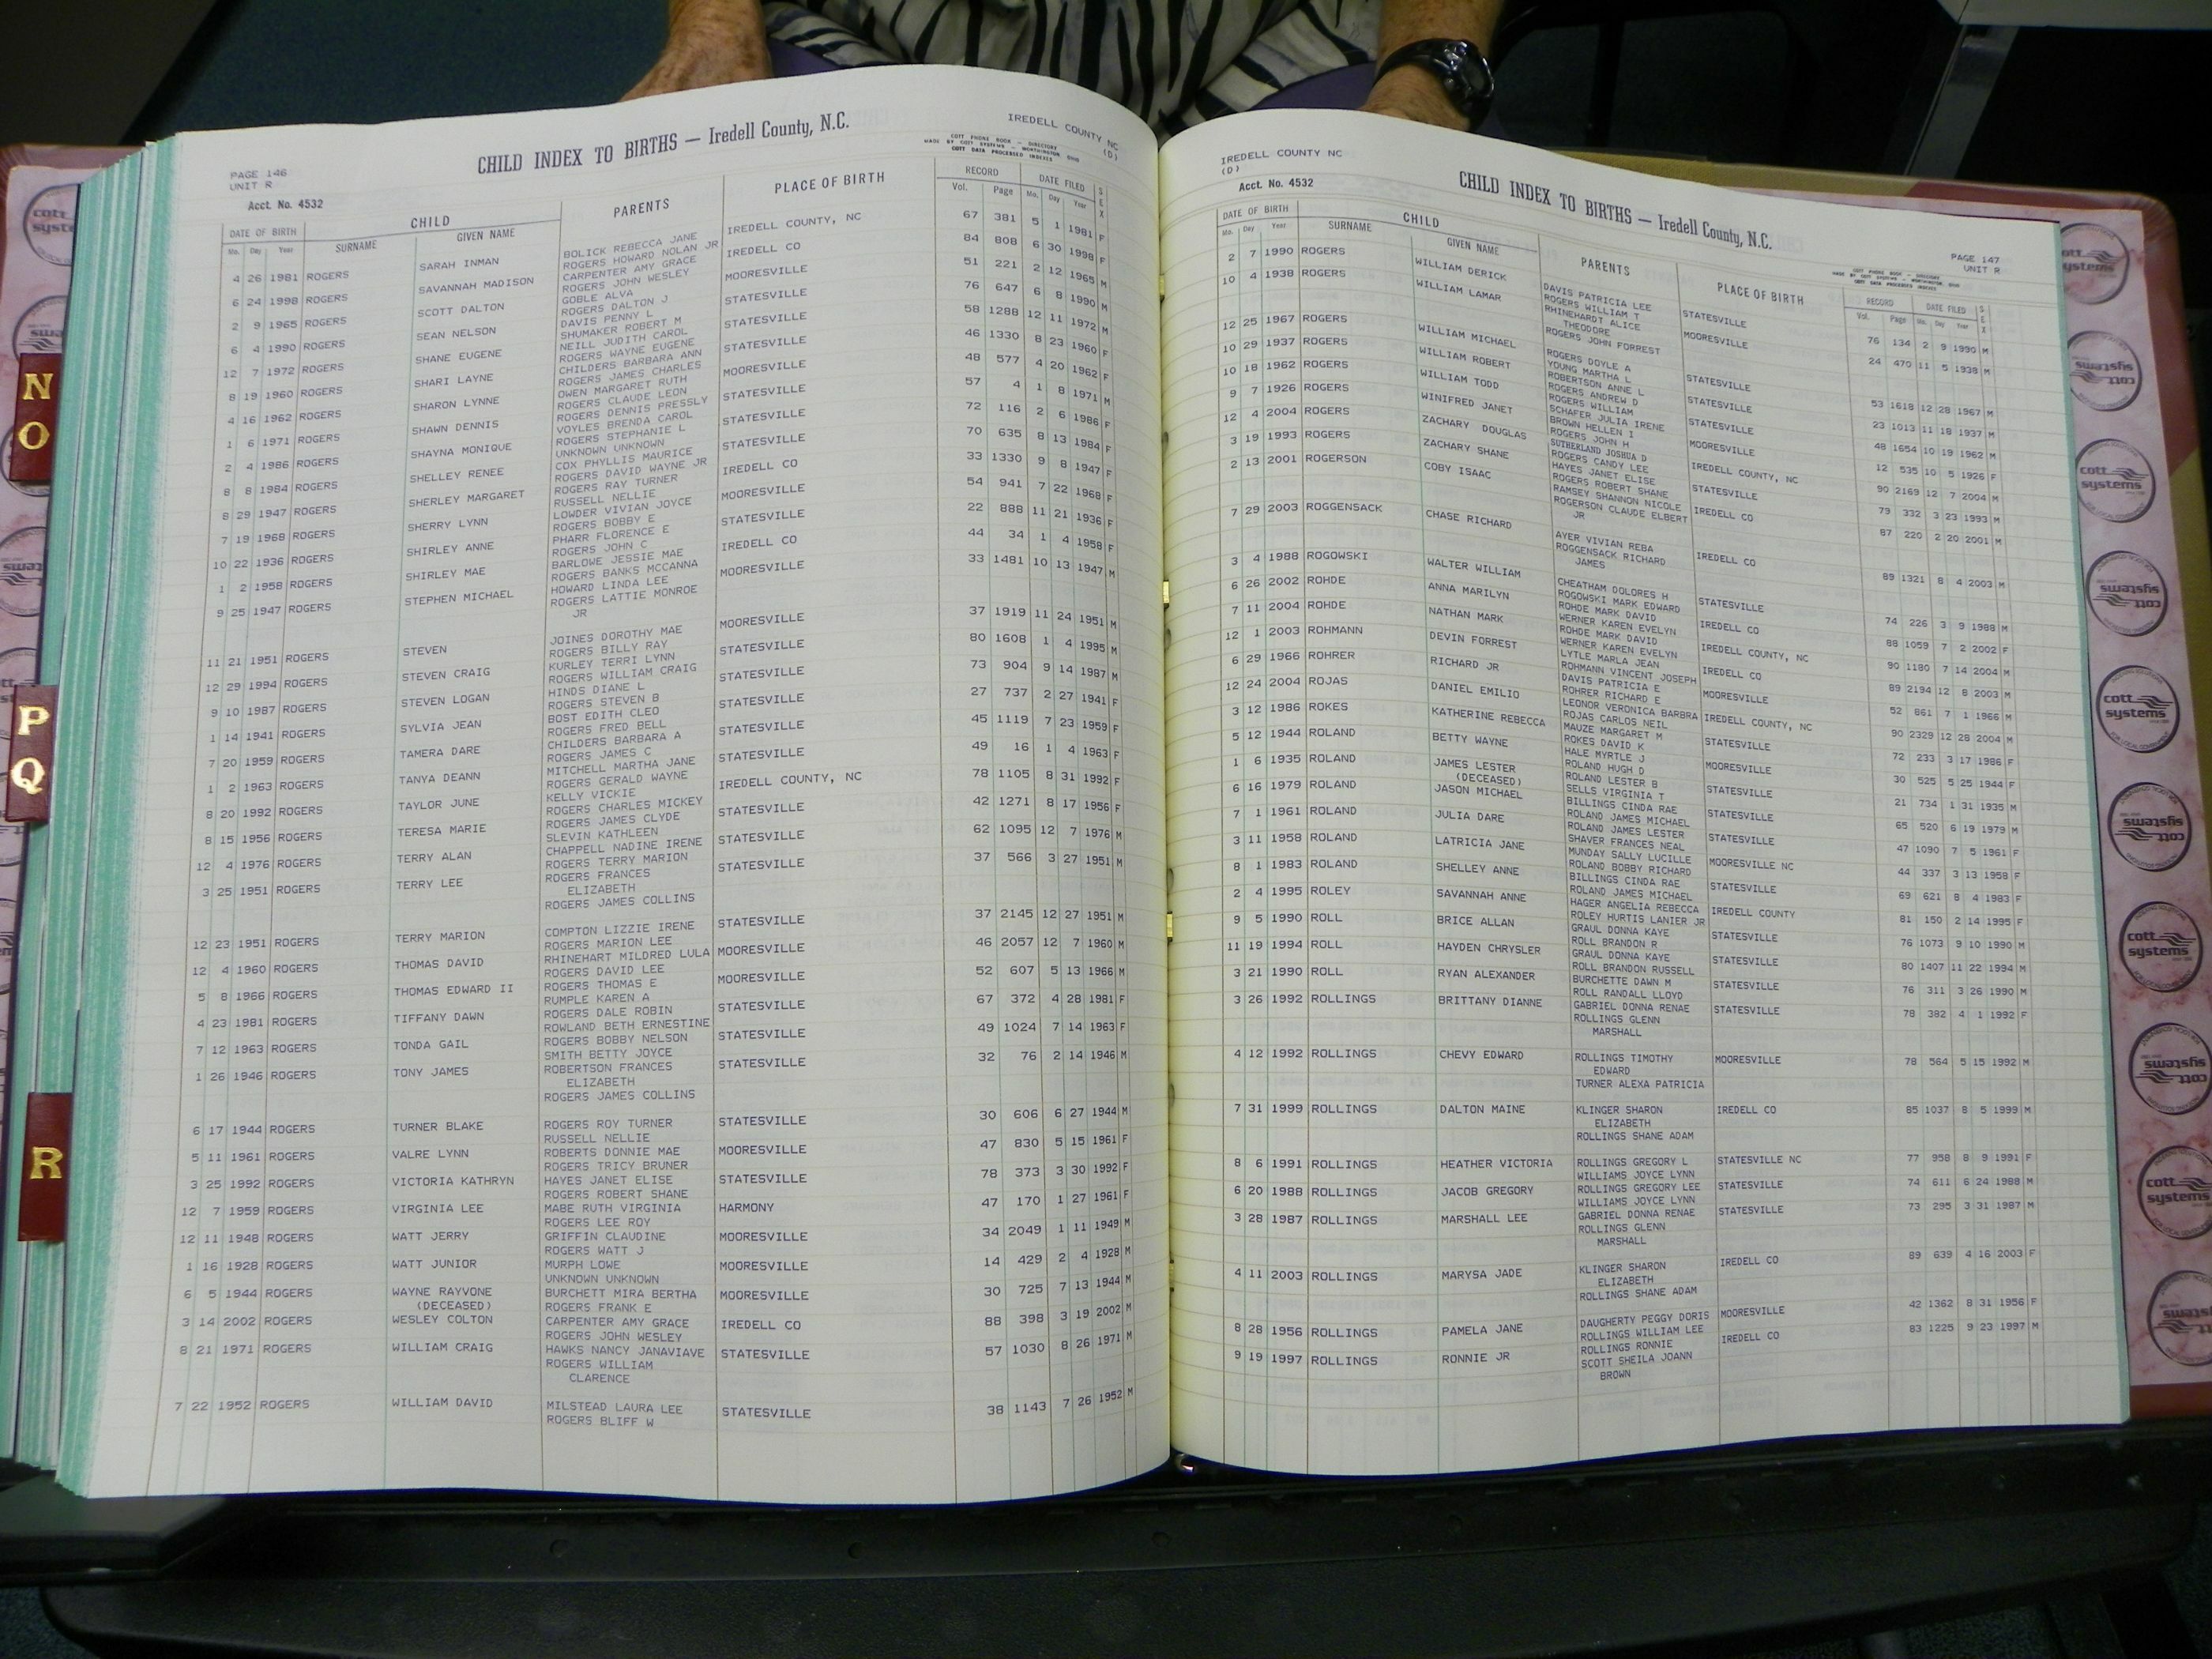 PAGE 146
UNIT R
Acct. No. 4532
CHILD INDEX TO BIRTHS — Iredell County, N.C.
IREDELL COUNTY NC
(D)
COTT PHONE BOOK — DIRECTORY
MADE BY COTT SYSTEMS — WORTHINGTON, OHIO
COTT DATA PROCESSED INDEXES
DATE OF BIRTH CHILD PARENTS PLACE OF BIRTH RECORD DATE FILED SEX
Mo. Day Year SURNAME GIVEN NAME Vol. Page Mo. Day Year
4 26 1981 ROGERS SARAH INMAN BOLICK REBECCA JANE IREDELL COUNTY, NC 67 381 5 1 1981 F
ROGERS HOWARD NOLAN JR
6 24 1998 ROGERS SAVANNAH MADISON CARPENTER AMY GRACE IREDELL CO 84 808 6 30 1998 F
ROGERS JOHN WESLEY
2 9 1965 ROGERS SCOTT DALTON GOBLE ALVA MOORESVILLE 51 221 2 12 1965 M
ROGERS DALTON J
6 4 1990 ROGERS SEAN NELSON DAVIS PENNY L STATESVILLE 76 647 6 8 1990 M
SHUMAKER ROBERT M
12 7 1972 ROGERS SHANE EUGENE NEILL JUDITH CAROL STATESVILLE 58 1288 12 11 1972 M
ROGERS WAYNE EUGENE
8 19 1960 ROGERS SHARI LAYNE CHILDERS BARBARA ANN STATESVILLE 46 1330 8 23 1960 F
ROGERS JAMES CHARLES
4 16 1962 ROGERS SHARON LYNNE OWEN MARGARET RUTH MOORESVILLE 48 577 4 20 1962 F
ROGERS CLAUDE LEON
1 6 1971 ROGERS SHAWN DENNIS ROGERS DENNIS PRESSLY STATESVILLE 57 4 1 8 1971 M
VOYLES BRENDA CAROL
2 4 1986 ROGERS SHAYNA MONIQUE ROGERS STEPHANIE L STATESVILLE 72 116 2 6 1986 F
UNKNOWN UNKNOWN
8 8 1984 ROGERS SHELLEY RENEE COX PHYLLIS MAURICE STATESVILLE 70 635 8 13 1984 F
ROGERS DAVID WAYNE JR
8 29 1947 ROGERS SHERLEY MARGARET ROGERS RAY TURNER IREDELL CO 33 1330 9 8 1947 F
RUSSELL NELLIE
7 19 1968 ROGERS SHERRY LYNN LOWDER VIVIAN JOYCE MOORESVILLE 54 941 7 22 1968 F
ROGERS BOBBY E
10 22 1936 ROGERS SHIRLEY ANNE PHARR FLORENCE E STATESVILLE 22 888 11 21 1936 F
ROGERS JOHN C
1 2 1958 ROGERS SHIRLEY MAE BARLOWE JESSIE MAE IREDELL CO 44 34 1 4 1958 F
ROGERS BANKS MCCANNA
9 25 1947 ROGERS STEPHEN MICHAEL HOWARD LINDA LEE MOORESVILLE 33 1481 10 13 1947 M
ROGERS LATTIE MONROE
JR
11 21 1951 ROGERS STEVEN JOINES DOROTHY MAE MOORESVILLE 37 1919 11 24 1951 M
ROGERS BILLY RAY
12 29 1994 ROGERS STEVEN CRAIG KURLEY TERRI LYNN STATESVILLE 80 1608 1 4 1995 M
ROGERS WILLIAM CRAIG
9 10 1987 ROGERS STEVEN LOGAN HINDS DIANE L STATESVILLE 73 904 9 14 1987 M
ROGERS STEVEN B
1 14 1941 ROGERS SYLVIA JEAN BOST EDITH CLEO STATESVILLE 27 737 2 27 1941 F
ROGERS FRED BELL
7 20 1959 ROGERS TAMERA DARE CHILDERS BARBARA A STATESVILLE 45 1119 7 23 1959 F
ROGERS JAMES C
1 2 1963 ROGERS TANYA DEANN MITCHELL MARTHA JANE STATESVILLE 49 16 1 4 1963 F
ROGERS GERALD WAYNE
8 20 1992 ROGERS TAYLOR JUNE KELLY VICKIE IREDELL COUNTY, NC 78 1105 8 31 1992 F
ROGERS CHARLES MICKEY
8 15 1956 ROGERS TERESA MARIE ROGERS JAMES CLYDE STATESVILLE 42 1271 8 17 1956 F
SLEVIN KATHLEEN
12 4 1976 ROGERS TERRY ALAN CHAPPELL NADINE IRENE STATESVILLE 62 1095 12 7 1976 M
ROGERS TERRY MARION
3 25 1951 ROGERS TERRY LEE ROGERS FRANCES STATESVILLE 37 566 3 27 1951 M
ELIZABETH
ROGERS JAMES COLLINS
12 23 1951 ROGERS TERRY MARION COMPTON LIZZIE IRENE STATESVILLE 37 2145 12 27 1951 M
ROGERS MARION LEE
12 4 1960 ROGERS THOMAS DAVID RHINEHART MILDRED LULA MOORESVILLE 46 2057 12 7 1960 M
ROGERS DAVID LEE
5 8 1966 ROGERS THOMAS EDWARD II ROGERS THOMAS E MOORESVILLE 52 607 5 13 1966 M
RUMPLE KAREN A
4 23 1981 ROGERS TIFFANY DAWN ROGERS DALE ROBIN STATESVILLE 67 372 4 28 1981 F
ROWLAND BETH ERNESTINE
7 12 1963 ROGERS TONDA GAIL ROGERS BOBBY NELSON STATESVILLE 49 1024 7 14 1963 F
SMITH BETTY JOYCE
1 26 1946 ROGERS TONY JAMES ROBERTSON FRANCES STATESVILLE 32 76 2 14 1946 M
ELIZABETH
ROGERS JAMES COLLINS
6 17 1944 ROGERS TURNER BLAKE ROGERS ROY TURNER STATESVILLE 30 606 6 27 1944 M
RUSSELL NELLIE
5 11 1961 ROGERS VALRE LYNN ROBERTS DONNIE MAE MOORESVILLE 47 830 5 15 1961 F
ROGERS TRICY BRUNER
3 25 1992 ROGERS VICTORIA KATHRYN HAYES JANET ELISE STATESVILLE 78 373 3 30 1992 F
ROGERS ROBERT SHANE
12 7 1959 ROGERS VIRGINIA LEE MABE RUTH VIRGINIA HARMONY 47 170 1 27 1961 F
ROGERS LEE ROY
12 11 1948 ROGERS WATT JERRY GRIFFIN CLAUDINE MOORESVILLE 34 2049 1 11 1949 M
ROGERS WATT J
1 16 1928 ROGERS WATT JUNIOR MURPH LOWE MOORESVILLE 14 429 2 4 1928 M
UNKNOWN UNKNOWN
6 5 1944 ROGERS WAYNE RAYVONE BURCHETT MIRA BERTHA MOORESVILLE 30 725 7 13 1944 M
(DECEASED) ROGERS FRANK E
3 14 2002 ROGERS WESLEY COLTON CARPENTER AMY GRACE IREDELL CO 88 398 3 19 2002 M
ROGERS JOHN WESLEY
8 21 1971 ROGERS WILLIAM CRAIG HAWKS NANCY JANAVIAVE STATESVILLE 57 1030 8 26 1971 M
ROGERS WILLIAM
CLARENCE
7 22 1952 ROGERS WILLIAM DAVID MILSTEAD LAURA LEE STATESVILLE 38 1143 7 26 1952 M
ROGERS BLIFF W
IREDELL COUNTY NC
(D)
Acct. No. 4532
CHILD INDEX TO BIRTHS — Iredell County, N.C.
PAGE 147
UNIT R
COTT PHONE BOOK — DIRECTORY
MADE BY COTT SYSTEMS — WORTHINGTON, OHIO
COTT DATA PROCESSED INDEXES
DATE OF BIRTH CHILD PARENTS PLACE OF BIRTH RECORD DATE FILED SEX
Mo. Day Year SURNAME GIVEN NAME Vol. Page Mo. Day Year
2 7 1990 ROGERS WILLIAM DERICK DAVIS PATRICIA LEE STATESVILLE 76 134 2 9 1990 M
ROGERS WILLIAM T
10 4 1938 ROGERS WILLIAM LAMAR RHINEHARDT ALICE MOORESVILLE 24 470 11 5 1938 M
THEODORE
ROGERS JOHN FORREST
12 25 1967 ROGERS WILLIAM MICHAEL ROGERS DOYLE A STATESVILLE 53 1618 12 28 1967 M
YOUNG MARTHA L
10 29 1937 ROGERS WILLIAM ROBERT ROBERTSON ANNE L STATESVILLE 23 1013 11 18 1937 M
ROGERS ANDREW D
10 18 1962 ROGERS WILLIAM TODD ROGERS WILLIAM STATESVILLE 48 1654 10 19 1962 M
SCHAFER JULIA IRENE
9 7 1926 ROGERS WINIFRED JANET BROWN HELLEN I MOORESVILLE 12 535 10 5 1926 F
ROGERS JOHN H
12 4 2004 ROGERS ZACHARY DOUGLAS SUTHERLAND JOSHUA D IREDELL COUNTY, NC 90 2169 12 7 2004 M
ROGERS CANDY LEE
3 19 1993 ROGERS ZACHARY SHANE HAYES JANET ELISE STATESVILLE 79 332 3 23 1993 M
ROGERS ROBERT SHANE
2 13 2001 ROGERSON COBY ISAAC RAMSEY SHANNON NICOLE IREDELL CO 87 220 2 20 2001 M
ROGERSON CLAUDE ELBERT
JR
7 29 2003 ROGGENSACK CHASE RICHARD AYER VIVIAN REBA IREDELL CO 89 1321 8 4 2003 M
ROGGENSACK RICHARD
JAMES
3 4 1988 ROGOWSKI WALTER WILLIAM CHEATHAM DOLORES H STATESVILLE 74 226 3 9 1988 M
ROGOWSKI MARK EDWARD
6 26 2002 ROHDE ANNA MARILYN ROHDE MARK DAVID IREDELL CO 88 1059 7 2 2002 F
WERNER KAREN EVELYN
7 11 2004 ROHDE NATHAN MARK ROHDE MARK DAVID IREDELL COUNTY, NC 90 1180 7 14 2004 M
WERNER KAREN EVELYN
12 1 2003 ROHMANN DEVIN FORREST LYTLE MARLA JEAN IREDELL CO 89 2194 12 8 2003 M
ROHMANN VINCENT JOSEPH
6 29 1966 ROHRER RICHARD JR DAVIS PATRICIA E MOORESVILLE 52 861 7 1 1966 M
ROHRER RICHARD E
12 24 2004 ROJAS DANIEL EMILIO LEONOR VERONICA BARBRA IREDELL COUNTY, NC 90 2329 12 28 2004 M
ROJAS CARLOS NEIL
3 12 1986 ROKES KATHERINE REBECCA MAUZE MARGARET M STATESVILLE 72 233 3 17 1986 F
ROKES DAVID K
5 12 1944 ROLAND BETTY WAYNE HALE MYRTLE J MOORESVILLE 30 525 5 25 1944 F
ROLAND HUGH D
1 6 1935 ROLAND JAMES LESTER ROLAND LESTER B STATESVILLE 21 734 1 31 1935 M
(DECEASED) SELLS VIRGINIA T
6 16 1979 ROLAND JASON MICHAEL BILLINGS CINDA RAE STATESVILLE 65 520 6 19 1979 M
ROLAND JAMES MICHAEL
7 1 1961 ROLAND JULIA DARE ROLAND JAMES LESTER STATESVILLE 47 1090 7 5 1961 F
SHAVER FRANCES NEAL
3 11 1958 ROLAND LATRICIA JANE MUNDAY SALLY LUCILLE MOORESVILLE NC 44 337 3 13 1958 F
ROLAND BOBBY RICHARD
8 1 1983 ROLAND SHELLEY ANNE BILLINGS CINDA RAE STATESVILLE 69 621 8 4 1983 F
ROLAND JAMES MICHAEL
2 4 1995 ROLEY SAVANNAH ANNE HAGER ANGELIA REBECCA IREDELL COUNTY 81 150 2 14 1995 F
ROLEY HURTIS LANIER JR
9 5 1990 ROLL BRICE ALLAN GRAUL DONNA KAYE STATESVILLE 76 1073 9 10 1990 M
ROLL BRANDON R
11 19 1994 ROLL HAYDEN CHRYSLER GRAUL DONNA KAYE STATESVILLE 80 1407 11 22 1994 M
ROLL BRANDON RUSSELL
3 21 1990 ROLL RYAN ALEXANDER BURCHETTE DAWN M STATESVILLE 76 311 3 26 1990 M
ROLL RANDALL LLOYD
3 26 1992 ROLLINGS BRITTANY DIANNE GABRIEL DONNA RENAE STATESVILLE 78 382 4 1 1992 F
ROLLINGS GLENN
MARSHALL
4 12 1992 ROLLINGS CHEVY EDWARD ROLLINGS TIMOTHY MOORESVILLE 78 564 5 15 1992 M
EDWARD
TURNER ALEXA PATRICIA
7 31 1999 ROLLINGS DALTON MAINE KLINGER SHARON IREDELL CO 85 1037 8 5 1999 M
ELIZABETH
ROLLINGS SHANE ADAM
8 6 1991 ROLLINGS HEATHER VICTORIA ROLLINGS GREGORY L STATESVILLE NC 77 958 8 9 1991 F
WILLIAMS JOYCE LYNN
6 20 1988 ROLLINGS JACOB GREGORY ROLLINGS GREGORY LEE STATESVILLE 74 611 6 24 1988 M
WILLIAMS JOYCE LYNN
3 28 1987 ROLLINGS MARSHALL LEE GABRIEL DONNA RENAE STATESVILLE 73 295 3 31 1987 M
ROLLINGS GLENN
MARSHALL
4 11 2003 ROLLINGS MARYSA JADE KLINGER SHARON IREDELL CO 89 639 4 16 2003 F
ELIZABETH
ROLLINGS SHANE ADAM
8 28 1956 ROLLINGS PAMELA JANE DAUGHERTY PEGGY DORIS MOORESVILLE 42 1362 8 31 1956 F
ROLLINGS WILLIAM LEE
9 19 1997 ROLLINGS RONNIE JR ROLLINGS RONNIE IREDELL CO 83 1225 9 23 1997 M
SCOTT SHEILA JOANN
BROWN
N
O
P
Q
R
cott systems